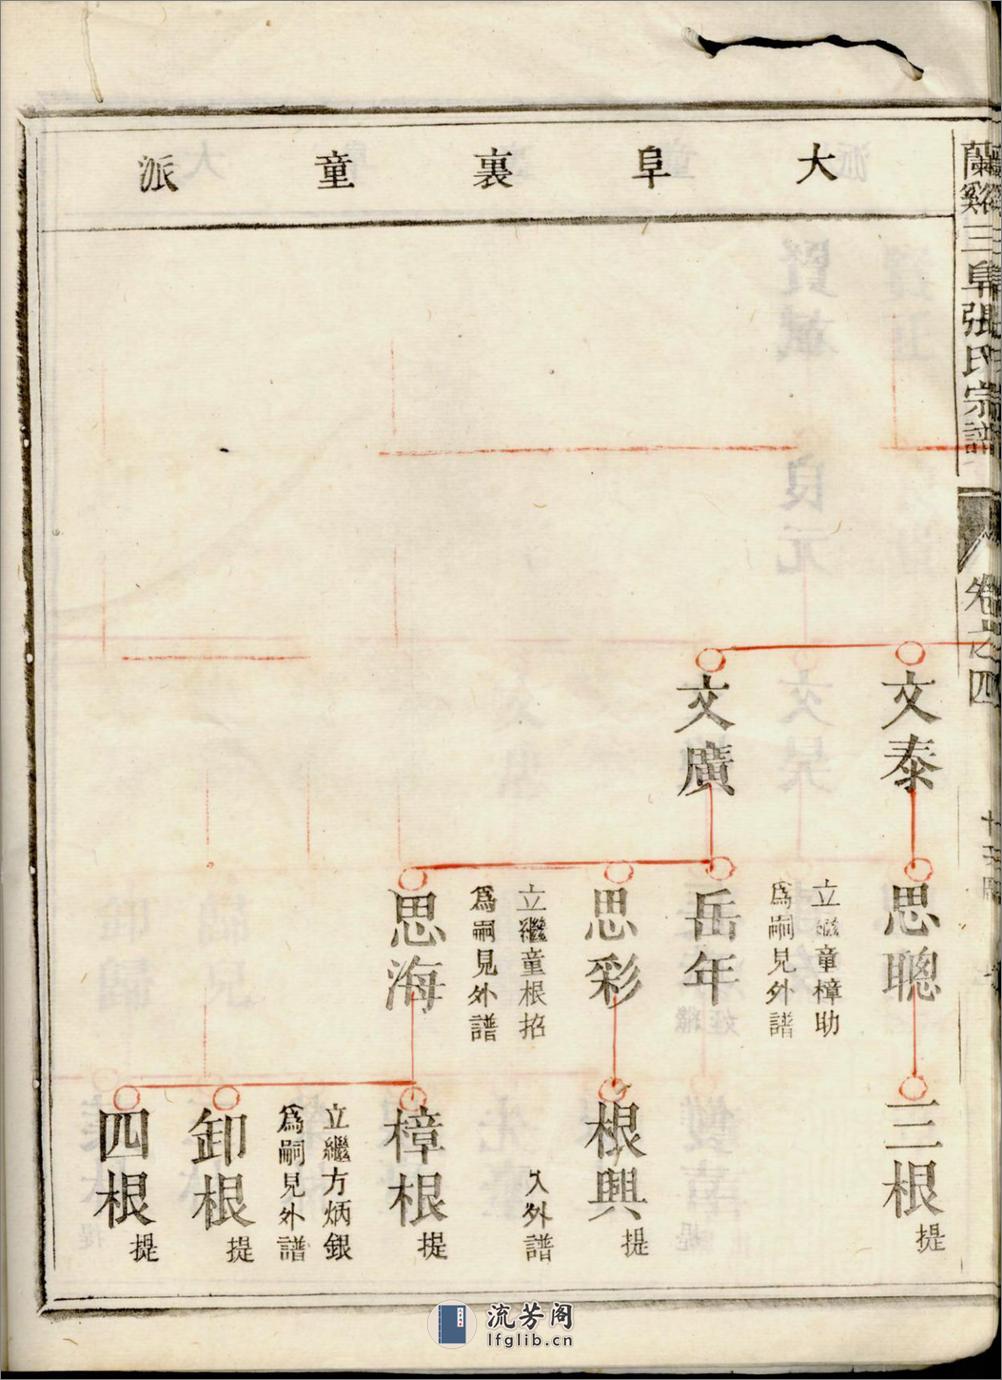 蘭谿三阜張氏宗譜
卷之四
大阜裏童派
文泰
文廣
思聰
立繼童樟助
爲嗣見外譜
岳年
思彩
立繼童根招
爲嗣見外譜
思海
三根 提
根興 提
入外譜
樟根 提
立繼方炳銀
爲嗣見外譜
卸根 提
四根 提
流芳阁
lfglib.cn